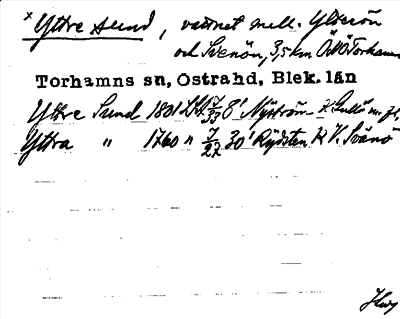 × Yttre sund, vattnet mell. Ytterön
och Svenön, 3,5 km ÖNÖ Torhamn
Torhamns sn, Östrahd, Blek. län
Yttre Sund 1801 7/33 8' Nyström
Yttra " 1760 " 7/27 30' Rydsten V. Svänö